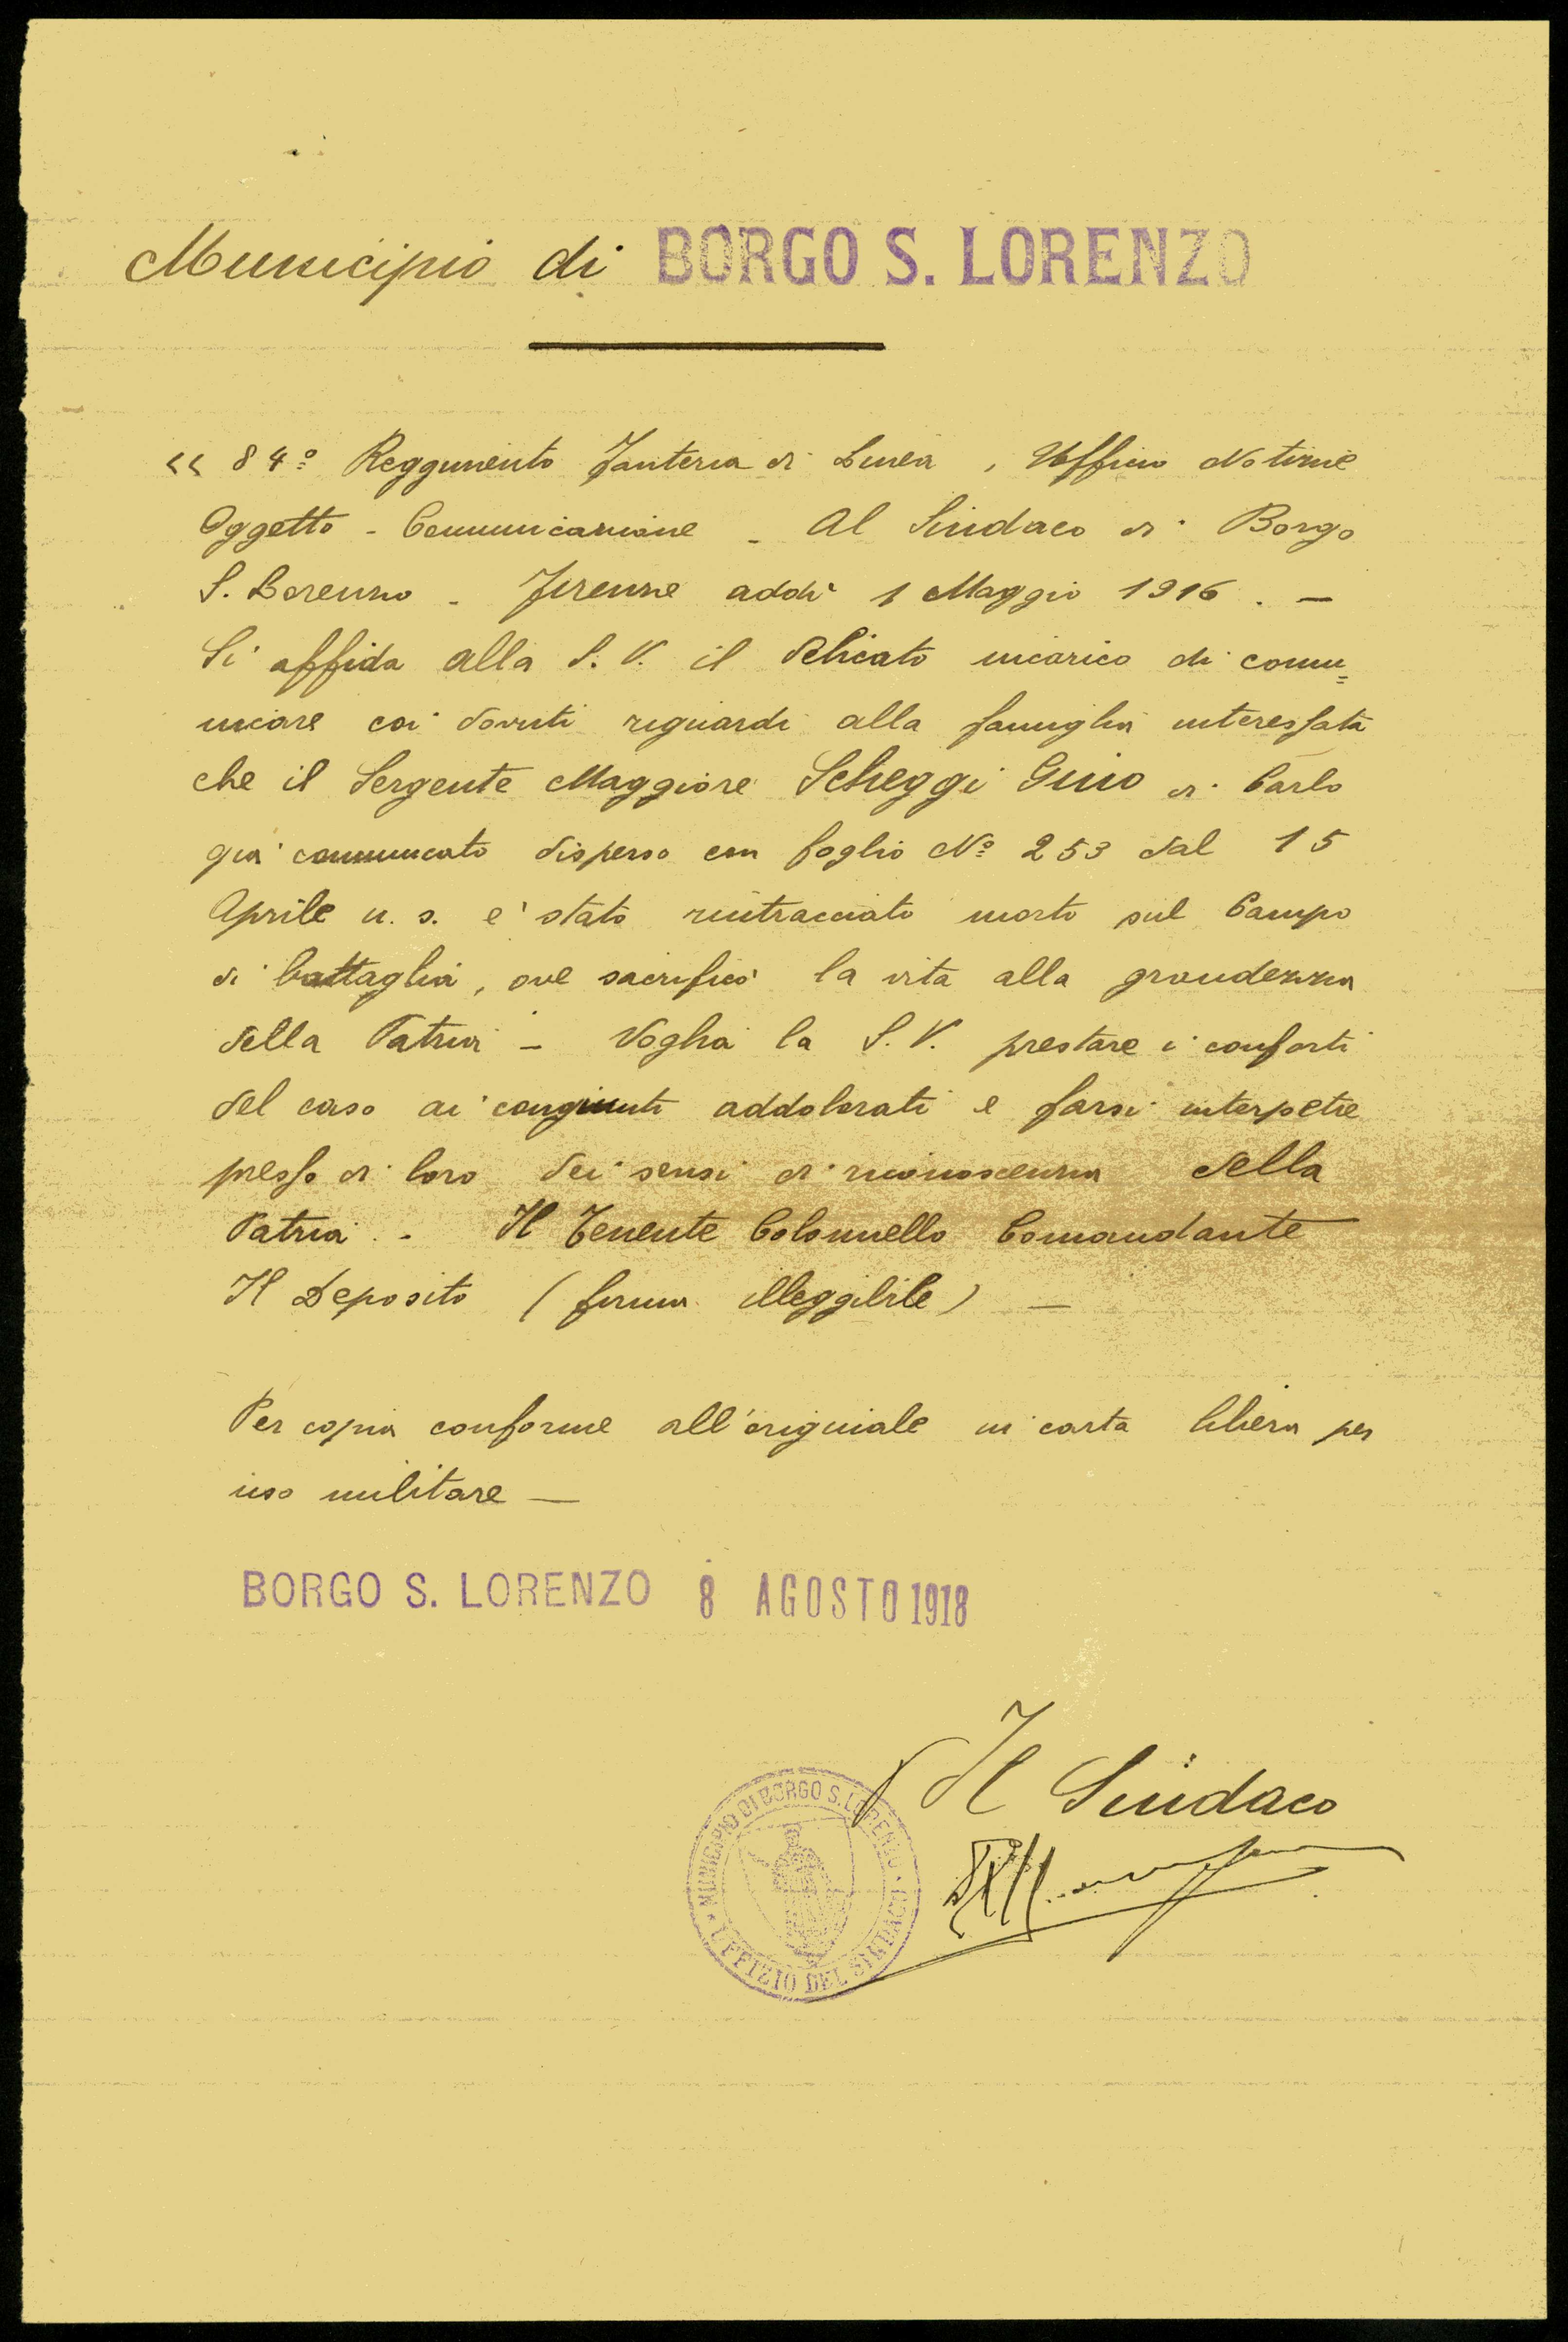 Municipio di BORGO S. LORENZO
<< 84º Reggimento Fanteria di Linea, Ufficio Notizie
Oggetto - Comunicazione - Al Sindaco di Borgo
S. Lorenzo - Firenze addì 1 Maggio 1916. -
Si affida alla S. V. il delicato incarico di comu=
nicare coi dovuti riguardi alla famiglia interessata
che il Sergente Maggiore Scheggi Gino di Carlo
già comunicato disperso con foglio Nº 253 dal 15
Aprile u. s. e' stato rintracciato morto sul Campo
di battaglia, ove sacrificò la vita alla grandezza
della Patria - Voglia la S. V. prestare i conforti
del caso ai congiunti addolorati e farsi interpetre
presso di loro dei sensi di riconoscenza della
Patria. - Il Tenente Colonnello Comandante
Il Deposito (firma illeggibile) -
Per copia conforme all'originale in carta libera per
uso militare -
BORGO S. LORENZO 8 AGOSTO 1918
Il Sindaco
MUNICIPIO DI BORGO S. LORENZO
UFFIZIO DEL SINDACO